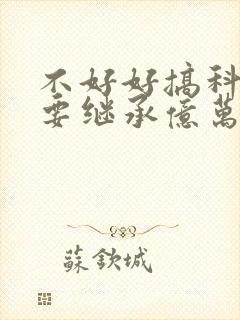 不好好搞科
要继承億萬
蘇欽城